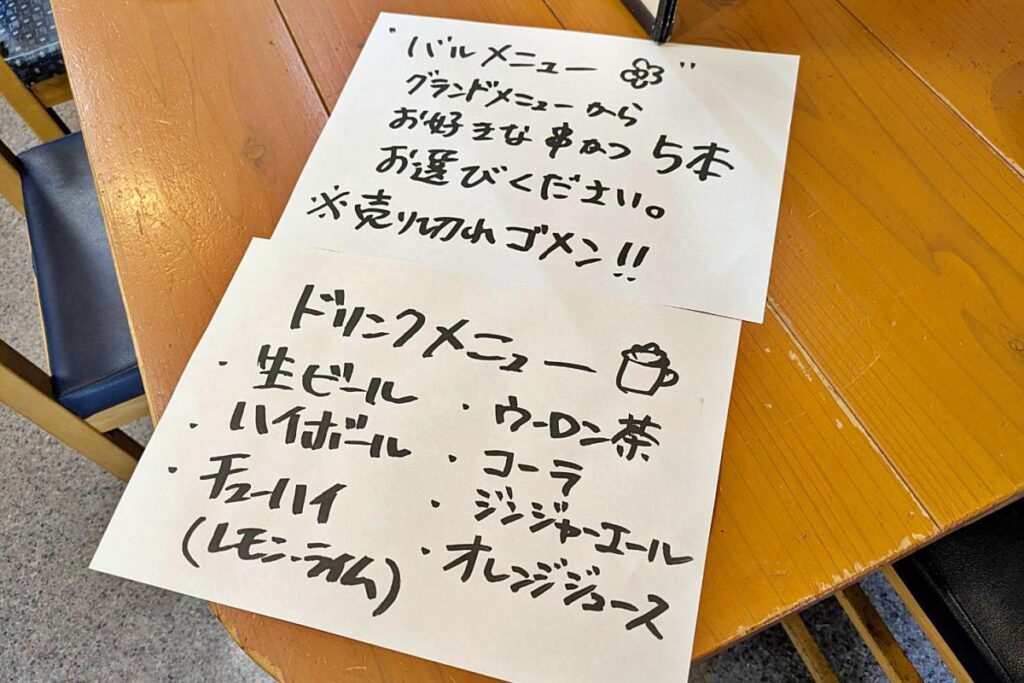 "バルメニュー"
グランドメニューから
お好きな串かつ 5本
お選びください。
※売り切れゴメン!!
ドリンクメニュー
・生ビール
・ハイボール
・チューハイ
(レモン・ライム)
・ウーロン茶
・コーラ
・ジンジャーエール
・オレンジジュース